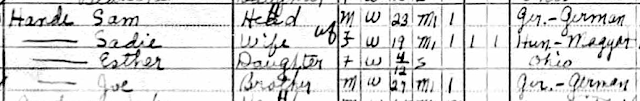 Hande Sam Head M W 23 M1 1 Ger.-German
— Sadie Wife F W 19 M1 1 1 1 Hun-Magyar
— Esther Daughter F W 4/12 S Ohio
— Joe Brother M W 27 M1 1 Ger.-German